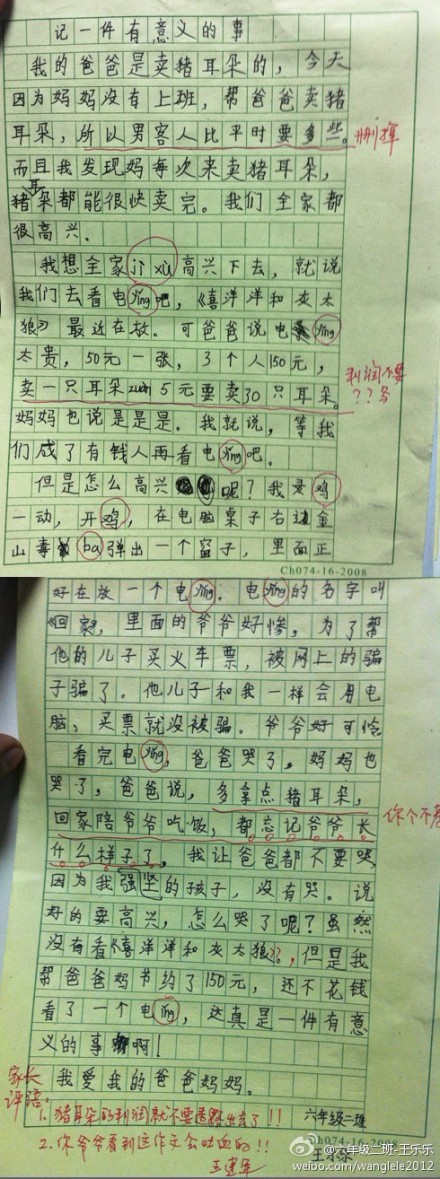 记一件有意义的事
我的爸爸是卖猪耳朵的，今天
因为妈妈没有上班，帮爸爸卖猪
耳朵，所以男客人比平时要多些。
删掉
而且我发现妈每次来卖猪耳朵，
猪耳朵都能很快卖完。我们全家都
很高兴．
我想全家jì xù高兴下去，就说
我们去看电yǐng吧，《喜洋洋和灰太
狼》最近在放．可爸爸说电yǐng
太贵，50元一张，3个人150元，
卖一只耳朵zuàn 5元要卖30只耳朵。
利润不要
？？多
妈妈也说是是是．我就说，等我
们成了有钱人再看电yǐng吧．
但是怎么高兴呢？我灵鸡
一动，开鸡，在电脑桌子右边金
山毒ba弹出一个窗子，里面正
Ch074-16-2008
好在放一个电yǐng．电yǐng的名字叫
《回家》，里面的爷爷好惨，为了帮
他的儿子买火车票，被网上的骗
子骗了．他儿子和我一样会用电
脑，买票就没被骗．爷爷好可怜
看完电yǐng，爸爸哭了，妈妈也
哭了，爸爸说，多拿点猪耳朵，
回家陪爷爷吃饭，都忘记爷爷长
你个不孝
什么样子了，我让爸爸都不要哭
因为我强坚的孩子，没有哭．说
好的要高兴，怎么哭了呢？虽然
没有看《喜洋洋和灰太狼》，但是我
帮爸爸妈节约了150元，还不花钱
看了一个电yǐng，这真是一件有意
义的事啊！
我爱我的爸爸妈妈。
家长
评语：
1．猪耳朵的利润就不要透露出去了！！
六年级二班
2．你爷爷看到这作文会吐血的！！
王建军
Ch074-16-2008
王乐乐
@六年级二班-王乐乐
weibo.com/wanglele2012